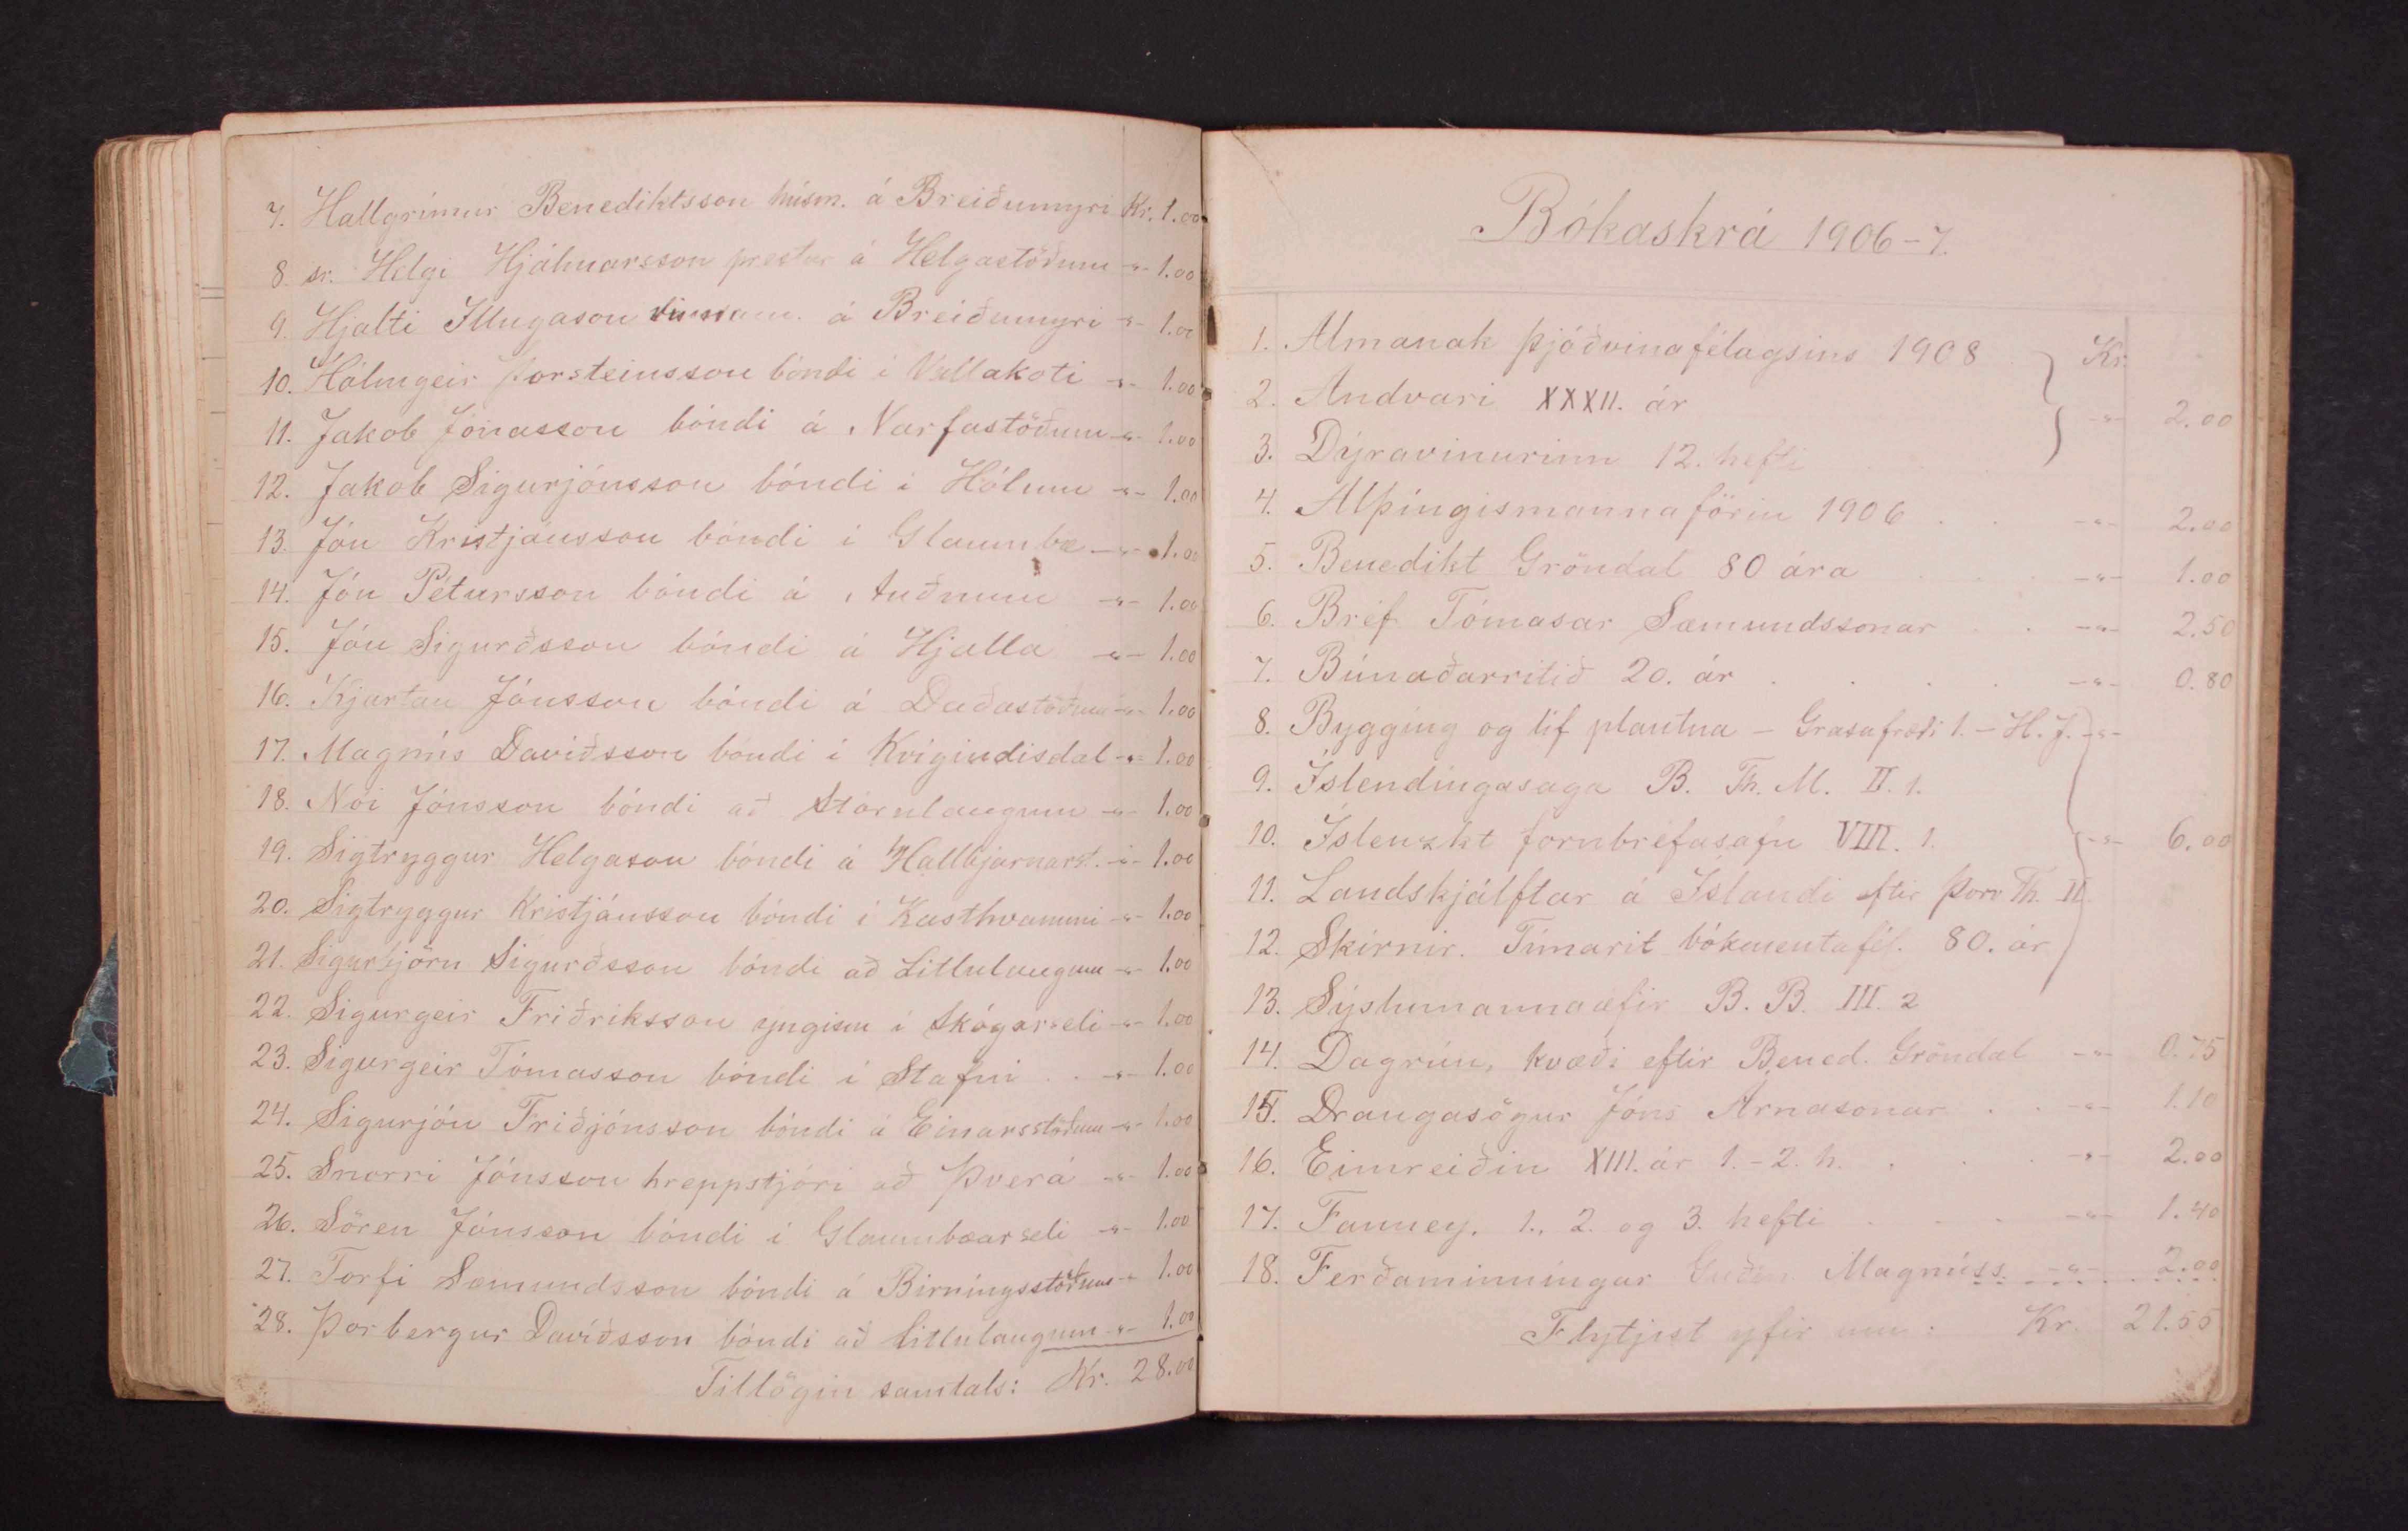 7. Hallgrímur Benediktsson húsm. á Breiðumýri Kr. 1.00
8. sr. Helgi Hjálmarsson prestur á Helgastöðum -"- 1.00
9. Hjalti Illugason á Breiðumýri -"- 1.00
10. Hólmgeir Þorsteinsson bóndi í Vallakoti -"- 1.00
11. Jakob Jónasson bóndi á Narfastöðum -"- 1.00
12. Jakob Sigurjónsson bóndi í Hólum -"- 1.00
13. Jón Kristjánsson bóndi í Glaumbæ -"- 1.00
14. Jón Pétursson bóndi á Auðnum -"- 1.00
15. Jón Sigurðsson bóndi á Hjalla -"- 1.00
16. Kjartan Jónsson bóndi á Daðastöðum -"- 1.00
17. Magnús Davíðsson bóndi í Kvigindisdal -"- 1.00
18. Nói Jónsson bóndi að Stórulaugum -"- 1.00
19. Sigtryggur Helgason bóndi á Hallbjarnarst. -"- 1.00
20. Sigtryggur Kristjánsson bóndi í Kasthvammi -"- 1.00
21. Sigurbjörn Sigurðsson bóndi að Litlulaugum -"- 1.00
22. Sigurgeir Friðriksson yngism í Skógarseli -"- 1.00
23. Sigurgeir Tómasson bóndi í Stafni . . -"- 1.00
24. Sigurjón Friðjónsson bóndi á Einarsstöðum -"- 1.00
25. Snorri Jónsson hreppstjóri að Þverá -"- 1.00
26. Sören Jónsson bóndi í Glaumbæarseli -"- 1.00
27. Torfi Sæmundsson bóndi á Birningsstöðum -"- 1.00
28. Þorbergur Davíðsson bóndi að Litlulaugum -"- 1.00
Tillögin samtals: Kr. 28.00
Bókaskrá 1906-7.
1. Almanak Þjóðvinafélagsins 1908 Kr.
2. Andvari XXXII. ár -"- 2.00
3. Dýravinurinn 12. hefti
4. Alþingismannaförin 1906 . . -"- 2.00
5. Benedikt Gröndal 80 ára . . . -"- 1.00
6. Bréf Tómasar Sæmundssonar . . -"- 2.50
7. Búnaðarritið 20. ár . . . . -"- 0.80
8. Bygging og líf plantna - Grasafræði 1. - H. J. -"-
9. Íslendingasaga B. Th. M. II. 1.
10. Íslenzkt fornbréfasafn VIII. 1. -"- 6.00
11. Landskjálftar á Íslandi eftir Þorv Th. II.
12. Skírnir. Tímarit bókmentafél. 80. ár
13. Sýslumannaæfir B. B. III. 2
14. Dagrún, kvæði eftir Bened. Gröndal -"- 0.75
15. Draugasögur Jóns Árnasonar . . -"- 1.10
16. Eimreiðin XIII. ár 1.-2. h. . . . -"- 2.00
17. Fanney. 1., 2. og 3. hefti . . . -"- 1.40
18. Ferðaminningar Magnúss. -"- 2.00
Flytjist yfir um: Kr. 21.55